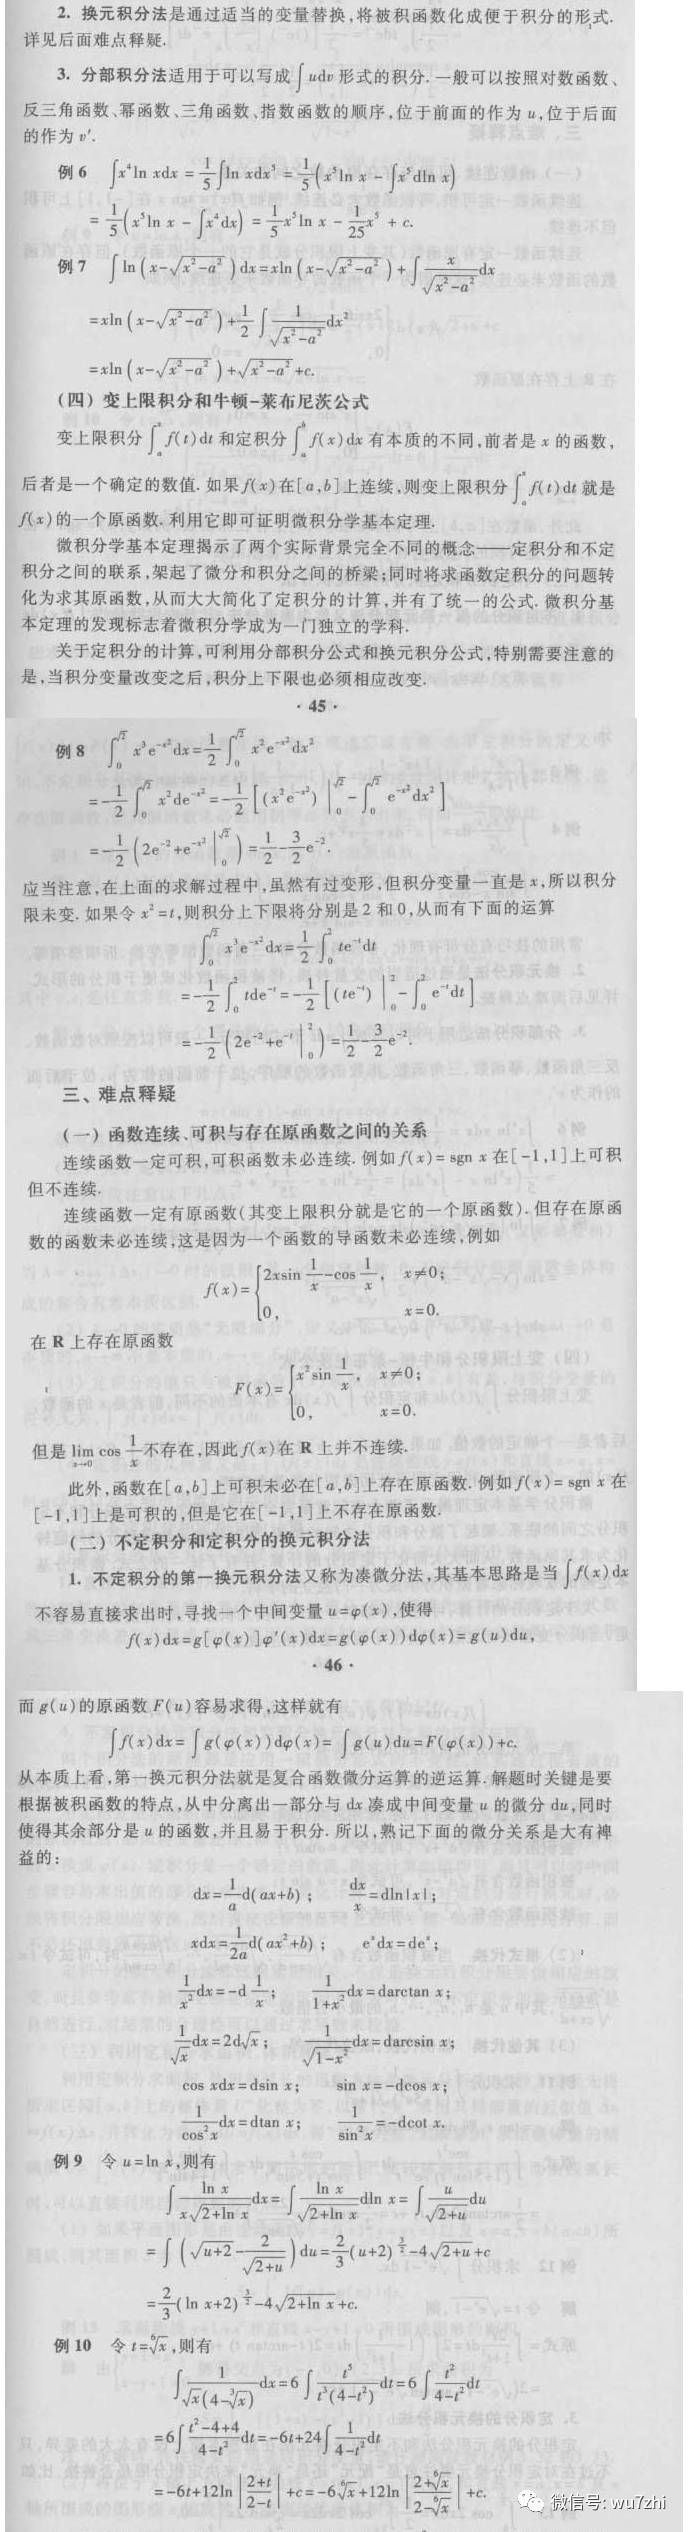 2. 换元积分法是通过适当的变量替换,将被积函数化成便于积分的形式.
详见后面难点释疑.
3. 分部积分法适用于可以写成 ∫udv 形式的积分. 一般可以按照对数函数、
反三角函数、幂函数、三角函数、指数函数的顺序,位于前面的作为 u,位于后面
的作为 v′.
例 6 ∫x⁴ln xdx = 1/5 ∫ln xdx⁵ = 1/5 (x⁵ln x - ∫x⁵dln x)
= 1/5 (x⁵ln x - ∫x⁴dx) = 1/5 x⁵ln x - 1/25 x⁵ + c.
例 7 ∫ln(x-√(x²-a²))dx = xln(x-√(x²-a²)) + ∫ x/√(x²-a²) dx
= xln(x-√(x²-a²)) + 1/2 ∫ 1/√(x²-a²) dx²
= xln(x-√(x²-a²)) + √(x²-a²) + c.
(四) 变上限积分和牛顿-莱布尼茨公式
变上限积分 ∫ₐˣ f(t)dt 和定积分 ∫ₐᵇ f(x)dx 有本质的不同,前者是 x 的函数,
后者是一个确定的数值. 如果 f(x)在[a,b]上连续,则变上限积分 ∫ₐˣ f(t)dt 就是
f(x)的一个原函数. 利用它即可证明微积分学基本定理.
微积分学基本定理揭示了两个实际背景完全不同的概念——定积分和不定
积分之间的联系,架起了微分和积分之间的桥梁;同时将求函数定积分的问题转
化为求其原函数,从而大大简化了定积分的计算,并有了统一的公式. 微积分基
本定理的发现标志着微积分学成为一门独立的学科.
关于定积分的计算,可利用分部积分公式和换元积分公式,特别需要注意的
是,当积分变量改变之后,积分上下限也必须相应改变.
· 45 ·
例 8 ∫₀^√2 x³e^(-x²)dx = 1/2 ∫₀^√2 x²e^(-x²)dx²
= -1/2 ∫₀^√2 x²de^(-x²) = -1/2 [(x²e^(-x²))|₀^√2 - ∫₀^√2 e^(-x²)dx²]
= -1/2 (2e⁻² + e^(-x²)|₀^√2) = 1/2 - 3/2 e⁻².
应当注意,在上面的求解过程中,虽然有过变形,但积分变量一直是 x,所以积分
限未变. 如果令 x²=t,则积分上下限将分别是 2 和 0,从而有下面的运算
∫₀^√2 x³e^(-x²)dx = 1/2 ∫₀² te⁻ᵗdt
= -1/2 ∫₀² tde⁻ᵗ = -1/2 [(te⁻ᵗ)|₀² - ∫₀² e⁻ᵗdt]
= -1/2 (2e⁻² + e⁻ᵗ|₀²) = 1/2 - 3/2 e⁻².
三、难点释疑
(一) 函数连续、可积与存在原函数之间的关系
连续函数一定可积,可积函数未必连续. 例如 f(x)= sgn x 在[-1,1]上可积
但不连续.
连续函数一定有原函数(其变上限积分就是它的一个原函数). 但存在原函
数的函数未必连续,这是因为一个函数的导函数未必连续,例如
f(x)= {2xsin 1/x - cos 1/x, x≠0;
0, x=0.
在 R 上存在原函数
F(x)= {x²sin 1/x, x≠0;
0, x=0.
但是 lim(x→0) cos 1/x 不存在,因此 f(x)在 R 上并不连续.
此外,函数在[a,b]上可积未必在[a,b]上存在原函数. 例如 f(x)= sgn x 在
[-1,1]上是可积的,但是它在[-1,1]上不存在原函数.
(二) 不定积分和定积分的换元积分法
1. 不定积分的第一换元积分法又称为凑微分法,其基本思路是当 ∫f(x)dx
不容易直接求出时,寻找一个中间变量 u=φ(x),使得
f(x)dx=g[φ(x)]φ′(x)dx=g(φ(x))dφ(x)=g(u)du,
· 46 ·
而 g(u)的原函数 F(u)容易求得,这样就有
∫f(x)dx = ∫g(φ(x))dφ(x) = ∫g(u)du = F(φ(x))+c.
从本质上看,第一换元积分法就是复合函数微分运算的逆运算. 解题时关键是要
根据被积函数的特点,从中分离出一部分与 dx 凑成中间变量 u 的微分 du,同时
使得其余部分是 u 的函数,并且易于积分. 所以,熟记下面的微分关系是大有裨
益的:
dx = 1/a d(ax+b); dx/x = dln|x|;
xdx = 1/2a d(ax²+b); eˣdx = deˣ;
1/x² dx = -d 1/x; 1/(1+x²) dx = darctan x;
1/√x dx = 2d√x; 1/√(1-x²) dx = darcsin x;
cos xdx = dsin x; sin x = -dcos x;
1/cos²x dx = dtan x; 1/sin²x = -dcot x.
例 9 令 u=ln x,则有
∫ ln x/(x√(2+ln x)) dx = ∫ ln x/√(2+ln x) dln x = ∫ u/√(2+u) du
= ∫ (√(u+2) - 2/√(2+u)) du = 2/3 (u+2)^(3/2) - 4√(2+u) + c
= 2/3 (ln x+2)^(3/2) - 4√(2+ln x) + c.
例 10 令 t=⁶√x,则有
∫ 1/(√x(4-³√x)) dx = 6∫ t⁵/(t³(4-t²)) dt = 6∫ t²/(4-t²) dt
= 6∫ (t²-4+4)/(4-t²) dt = -6t+24∫ 1/(4-t²) dt
= -6t+12ln |(2+t)/(2-t)| + c = -6⁶√x+12ln |(2+⁶√x)/(2-⁶√x)| + c.
微信号: wu7zhi